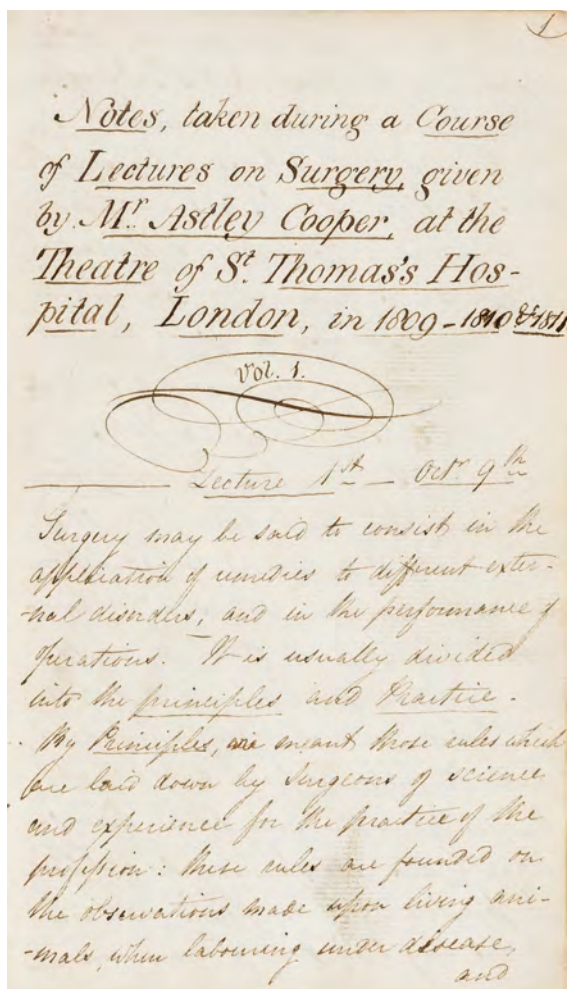 1
Notes, taken during a Course
of Lectures on Surgery, given
by Mr. Astley Cooper, at the
Theatre of St. Thomas's Hos-
pital, London, in 1809-1810 & 1811
Vol. 1.
Lecture 1st — Octr 9th
Surgery may be said to consist in the
application of remedies to different exter-
-nal disorders, and in the performance of
operations. It is usually divided
into the principles and Practice.
By Principles, are meant those rules which
are laid down by Surgeons of science
and experience for the practice of the
profession: these rules are founded on
the observations made upon living ani-
-mals, when labouring under disease,
and